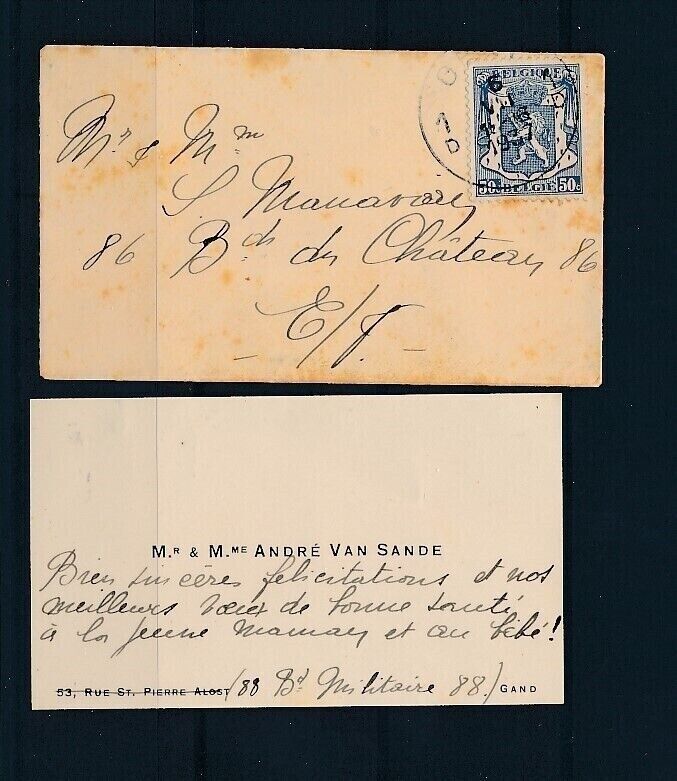 BELGIQUE
50c BELGIË 50c
Mr & Mme
S
86 Bd du Château 86
E/V.
Mr & Mme ANDRÉ VAN SANDE
Bien sincères felicitations et nos
meilleurs vœux de bonne santé
à la jeune maman et au bébé!
53, RUE ST. PIERRE ALOST (88 Bd Militaire 88.) GAND